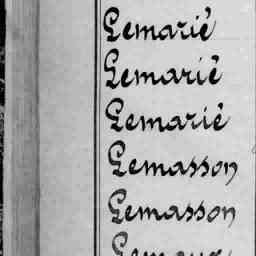 Lemarié
Lemarié
Lemarié
Lemasson
Lemasson